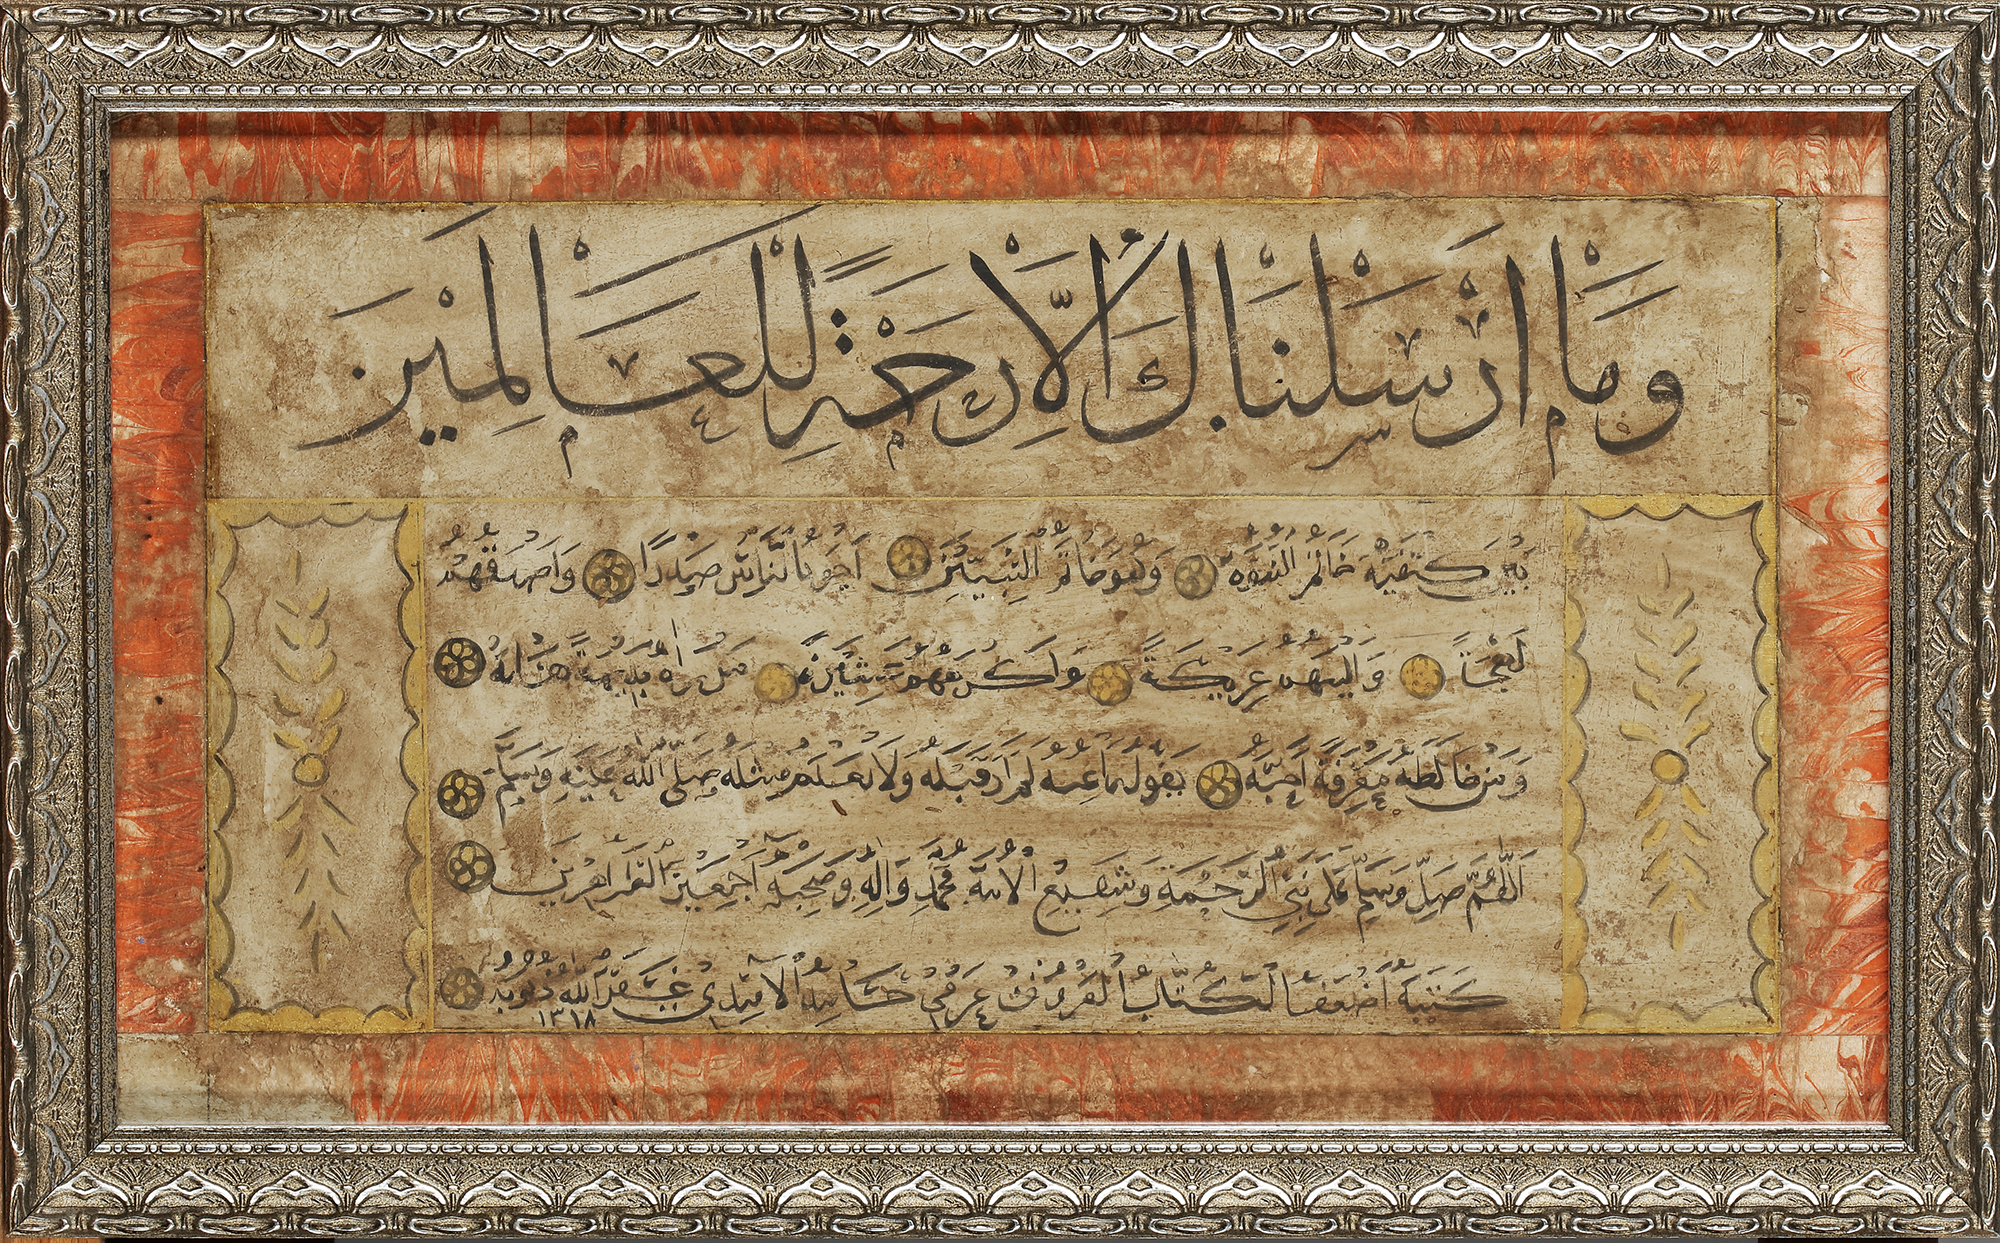 وَمَا أَرْسَلْنَاكَ إِلَّا رَحْمَةً لِلْعَالَمِينَ
بَيْنَ كَتِفَيْهِ خَاتَمُ النُّبُوَّةِ وَهُوَ خَاتَمُ النَّبِيِّينَ أَجْوَدُ النَّاسِ صَدْرًا وَأَصْدَقُهُمْ
لَهْجَةً وَأَلْيَنُهُمْ عَرِيكَةً وَأَكْرَمُهُمْ عَشِيرَةً مَنْ رَآهُ بَدِيهَةً هَابَهُ
وَمَنْ خَالَطَهُ مَعْرِفَةً أَحَبَّهُ يَقُولُ نَاعِتُهُ لَمْ أَرَ قَبْلَهُ وَلَا بَعْدَهُ مِثْلَهُ صَلَّى اللهُ عَلَيْهِ وَسَلَّمَ
اَللّٰهُمَّ صَلِّ وَسَلِّمْ عَلَى نَبِيِّ الرَّحْمَةِ وَشَفِيعِ الْأُمَّةِ مُحَمَّدٍ وَآلِهِ وَصَحْبِهِ أَجْمَعِينَ
كَتَبَهُ أَضْعَفُ الْكُتَّابِ الْمَعْرُوفُ الْآمِدِي غَفَرَ اللهُ ذُنُوبَهُ
١٣١٨